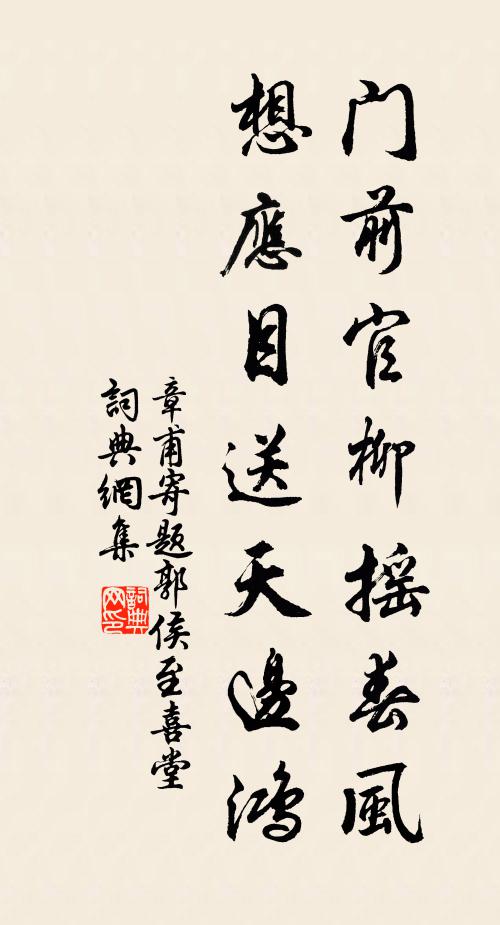 门前官柳摇春風
想應目送天邊鴻
章甫寄题郭侯至喜堂
詞典網集
詞典网印